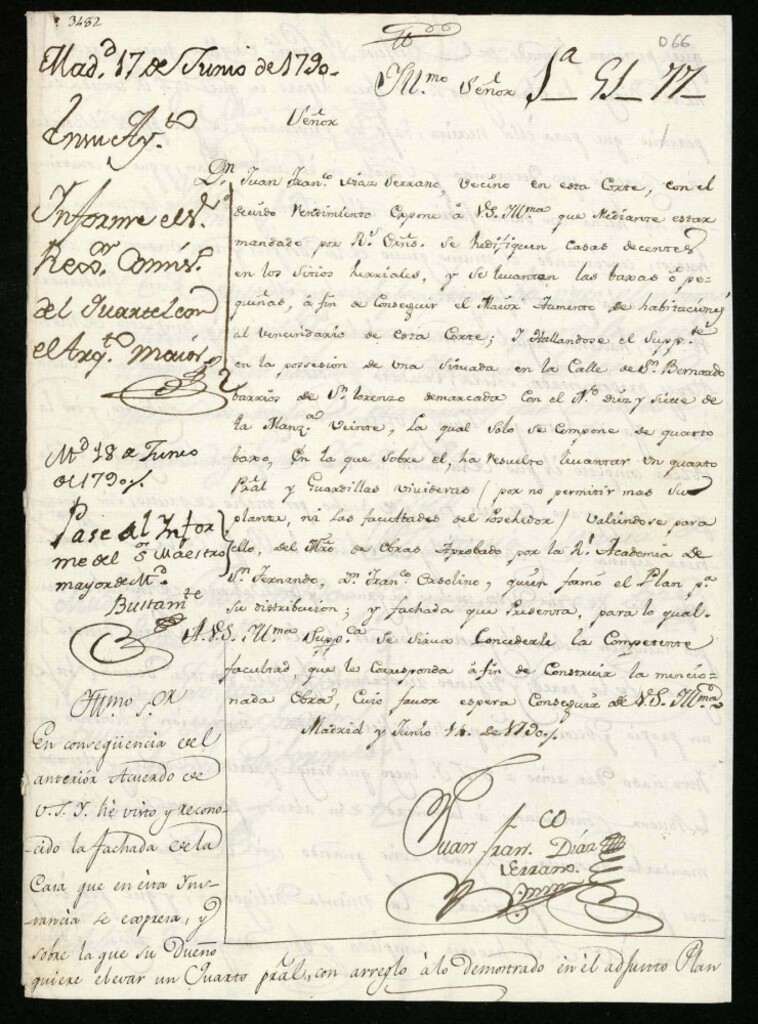 3482
D66
Mad.d 17 de Junio de 1790.
Ill.mo Señor
1a 51 77
Señor
En su Ay.to
Informe el S.r
Rex.or Comis.o
del Quartel con
el Arq.to maior
D.n Juan Fran.co Diaz Serrano, Vecino en esta Corte, con el
devido Rendimiento Expone à V.S. Ill.ma que Mediante estar
mandado por R.s Orns. se hedifiquen Casas decentes
en los Sitios herriales, y se levanten las baxas ò pe-
queñas, à fin de Conseguir el Maior Aumento de habitaciones
al Vencindario de esta Corte; Y Hallandose el Supp.te
en la possesion de una Situada en la Calle de S.n Bernardo
barrios de S.n Lorenzo demarcada con el N.o diez y Siete de
la Manz.a Veinte, La qual solo se Compone de quarto
baxo, En la que sobre el, ha resuelto levantar un quarto
Pr̃al y Guardillas vivideras (por no permitir mas su
planta, ni las facultades del Posehedor) Valiendose para
ello, del Mr̃o de Obras Aprobado por la R.l Academia de
S.n Fernando, D.n Fran.co quien formó el Plan p.a
su distribucion; y fachada que Presenta, para lo qual.
A V.S. Ill.ma Supp.ca se sirva Concederle la Competente
facultad, que le Corresponda à fin de Construir la mencio-
nada Obra, Cuio favor espera Conseguir de V.S. Ill.ma
Madrid y Junio 14. de 1790.
M.d 18 de Junio
de 1790.
Pase al Infor
me del S.or Maestro
mayor de M.d
Bustam.te
Juan Fran.co Diaz
Serrano.
Ill̃mo S.or
En conseqüencia del
anteriór Acuerdo de
V.S.Y. he visto y recono-
cido la fachada de la
Casa que en esta Yns-
tancia se expresa, y
sobre la que su Dueño
quiere elevar un Quarto pr̃al, con arreglo à lo demostrado en èl adjunto Plan